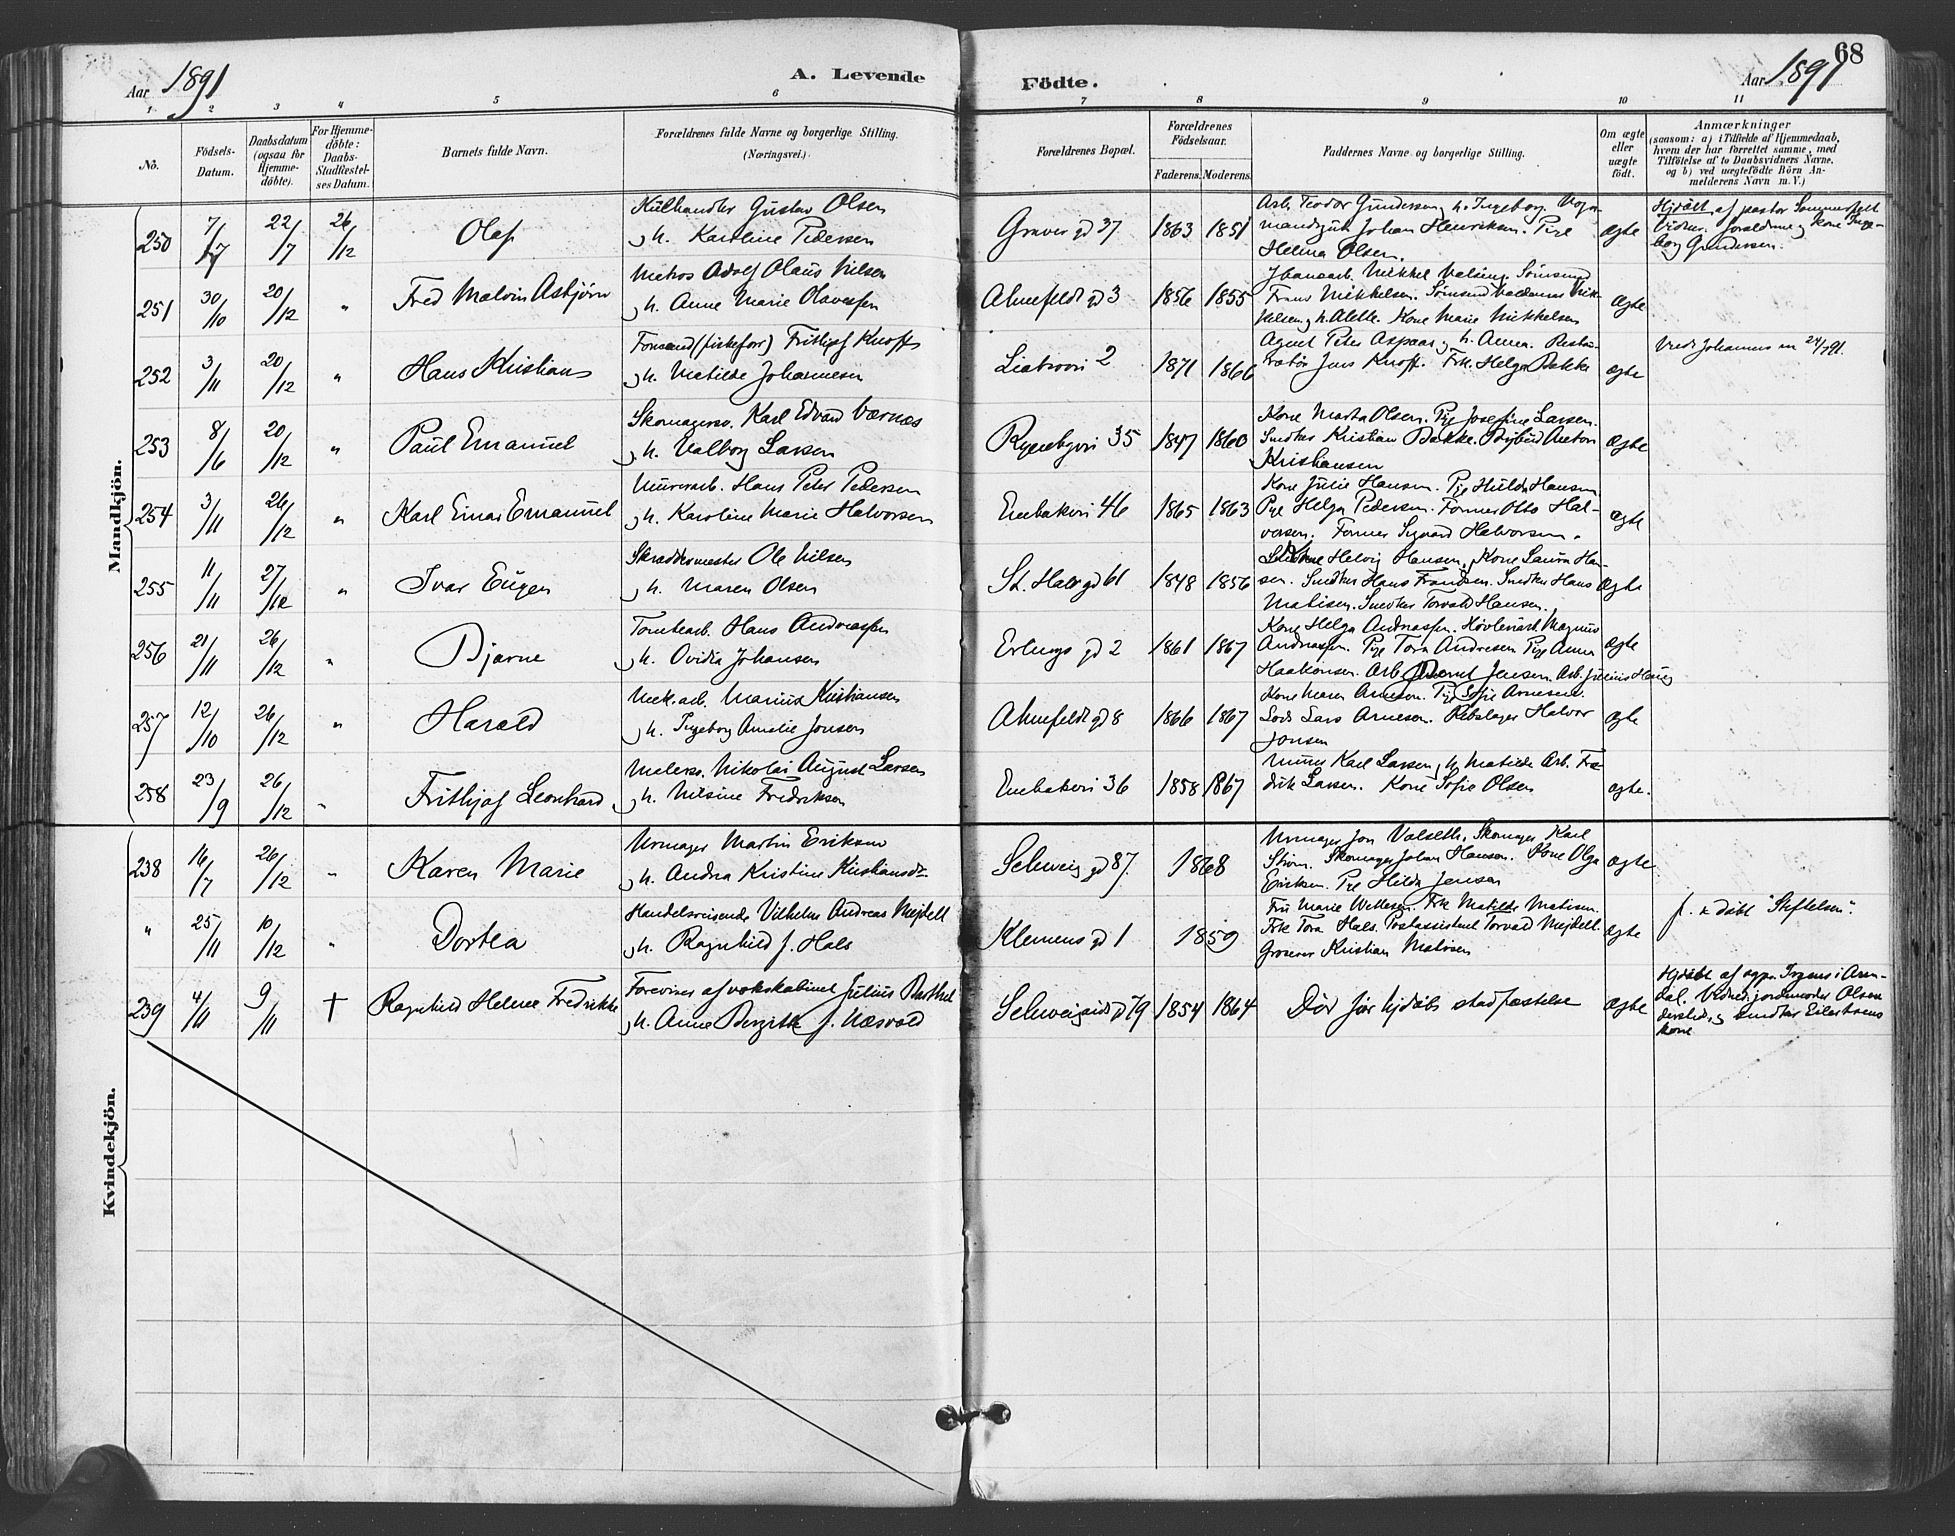 68
Aar 1891
A. Levende
Födte.
Aar 1891
1 2 3 4 5 6 7 8 9 10 11
No.
Födsels-
Datum.
Daabsdatum
(ogsaa for
Hjemme-
döbte).
For Hjemme-
döbte:
Daabs-
Stadfæstel-
ses Datum.
Barnets fulde Navn.
Forældrenes fulde Navne og borgerlige Stilling.
(Næringsvei.)
Forældrenes Bopæl.
Forældrenes
Födselsaar.
Faderens. Moderens.
Faddernes Navne og borgerlige Stilling.
Om ægte
eller
uægte
födt.
Anmærkninger
(saasom: a) i Tilfælde af Hjemmedaab,
hvem der har forrettet samme, med
Tilföielse af to Daabsvidners Navne.
og b) ved uægtefödte Börn An-
melderens Navn m. V.)
Mandkjön.
250 7/7 22/7 26/12 Olaf
Kulhandler Gustav Olsen
h. Karoline Pedersen
Graver gd 37 1863 1851
Arb. Teodor Gundersen, h. Ingeborg. Vogn-
mandsgut Johan Henriksen. Pige
Helma Olsen.
ægte
Hjdøbt af pastor Sommerfelt
Vidner: forældrene, kone Inge-
borg Gundersen.
251 30/10 20/12 " Fred Malvin Asbjörn
Matros Adolf Olaus Nilsen
h. Anne Marie Olavessen
Ahnefeldt gd 3 1856 1855
Frans Mikkelsen. Sömand Valdemar Mik-
kelsen, h. Alette. Kone Marie Mikkelsen
ægte
252 3/11 20/12 " Hans Kristian
Formand (fiskeforr) Frithjof Knoff
h. Matilde Johannesen
Liabrovei 2 1871 1866
Agent Peter Aspaas, h. Anna. Restu-
ratör Jens Knoff. Frk. Helga Bakke
ægte
Viede Johannes m 24/7 91.
253 8/6 20/12 " Paul Emanuel
Skomagersv. Karl Edvard Værnæs
h. Valborg Larsen
Ryenbgvei 35 1847 1860
Kone Marta Olsen. Pige Josefine Larsen.
Snedker Kristian Bakke. Bybud Anton
Kristiansen
ægte
254 3/11 26/12 " Karl Einar Emanuel
Murerarb. Hans Peter Pedersen
h. Karoline Marie Halvorsen
Enebakvei 46 1865 1863
Kone Julie Hansen. Pige Hulda Hansen
Pige Helga Pedersen. Former Otto Hal-
vorsen. Former Sigvard Halvorsen.
ægte
255 11/11 27/12 " Ivar Eugen
Skræddermester Ole Nilsen
h. Maren Olsen
St. Halv gd 61 1848 1856
Kone Helvig Hansen, Kone Laura Han-
sen. Snedker Hans Frandsen. Snedker Hans
Matisen. Snedker Torvald Hansen.
ægte
256 21/11 26/12 " Bjarne
Tomtearb. Hans Andreassen
h. Ovidia Johansen
Erlings gd 2 1861 1867
Kone Helga Andreassen. Høvleriarb Magnus
Andreassen. Pige Tora Andresen Pige Anna
Haakonsen. Arb. Bernt Jensen. Arb. Julius Haug
ægte
257 12/10 26/12 " Harald
Mek. arb. Marius Kristiansen
h. Ingeborg Amalie Jonsen
Ahnefeldt gd 8 1866 1867
Kone Maren Arnesen. Pige Sofie Arnesen.
Lods Lars Arnesen. Rebslager Halvor
Jonsen
ægte
258 23/9 26/12 " Frithjof Leonhard
Malersv. Nikolai August Larsen
h. Nilsine Fredriksen
Enebakvei 36 1858 1867
Murer Karl Larsen, h. Matilde. Arb. Fre-
drik Larsen. Kone Sofie Olsen
ægte.
Kvindekjön.
238 16/7 26/12 " Karen Marie
Urmager Martin Eriksen
h. Andrea Kristine Kristiansdr
Schweig gd 87. 1868
Urmager Jon Valseth. Skomager Karl
Ström. Skomager Johan Hansen. Kone Olga
Eriksen. Pige Hilda Jensen
ægte
" 25/11 10/12 " Dortea
Handelsreisende Vilhelm Andreas Mejdell
h. Ragnhild f. Hals
Klemens gd 1 1859
Fru Marie Willesen. Frk Matilde Matisen.
Frk Tora Hals. Postassistent Torvald Mejdell.
Grosserer Kristian Matisen
ægte
f. & döbt "Stiftelsen".
239 4/11 9/11 † Ragnhild Helene Fredrikke
Foreviser af vokskabinet Julius Barthel
h. Anne Bergitte f. Næsvold
Schweigaards gd 79 1854 1864
Död för hjdåbs stadfæstelse
ægte
Hjdöbt af sgpr. Irgens i Aren-
dal. Vidner: jordemoder Olsen
dersteds, snedker Eilertsens
kone